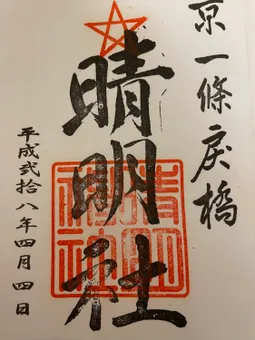 京一條戻橋
晴明社
平成弐拾八年四月四日